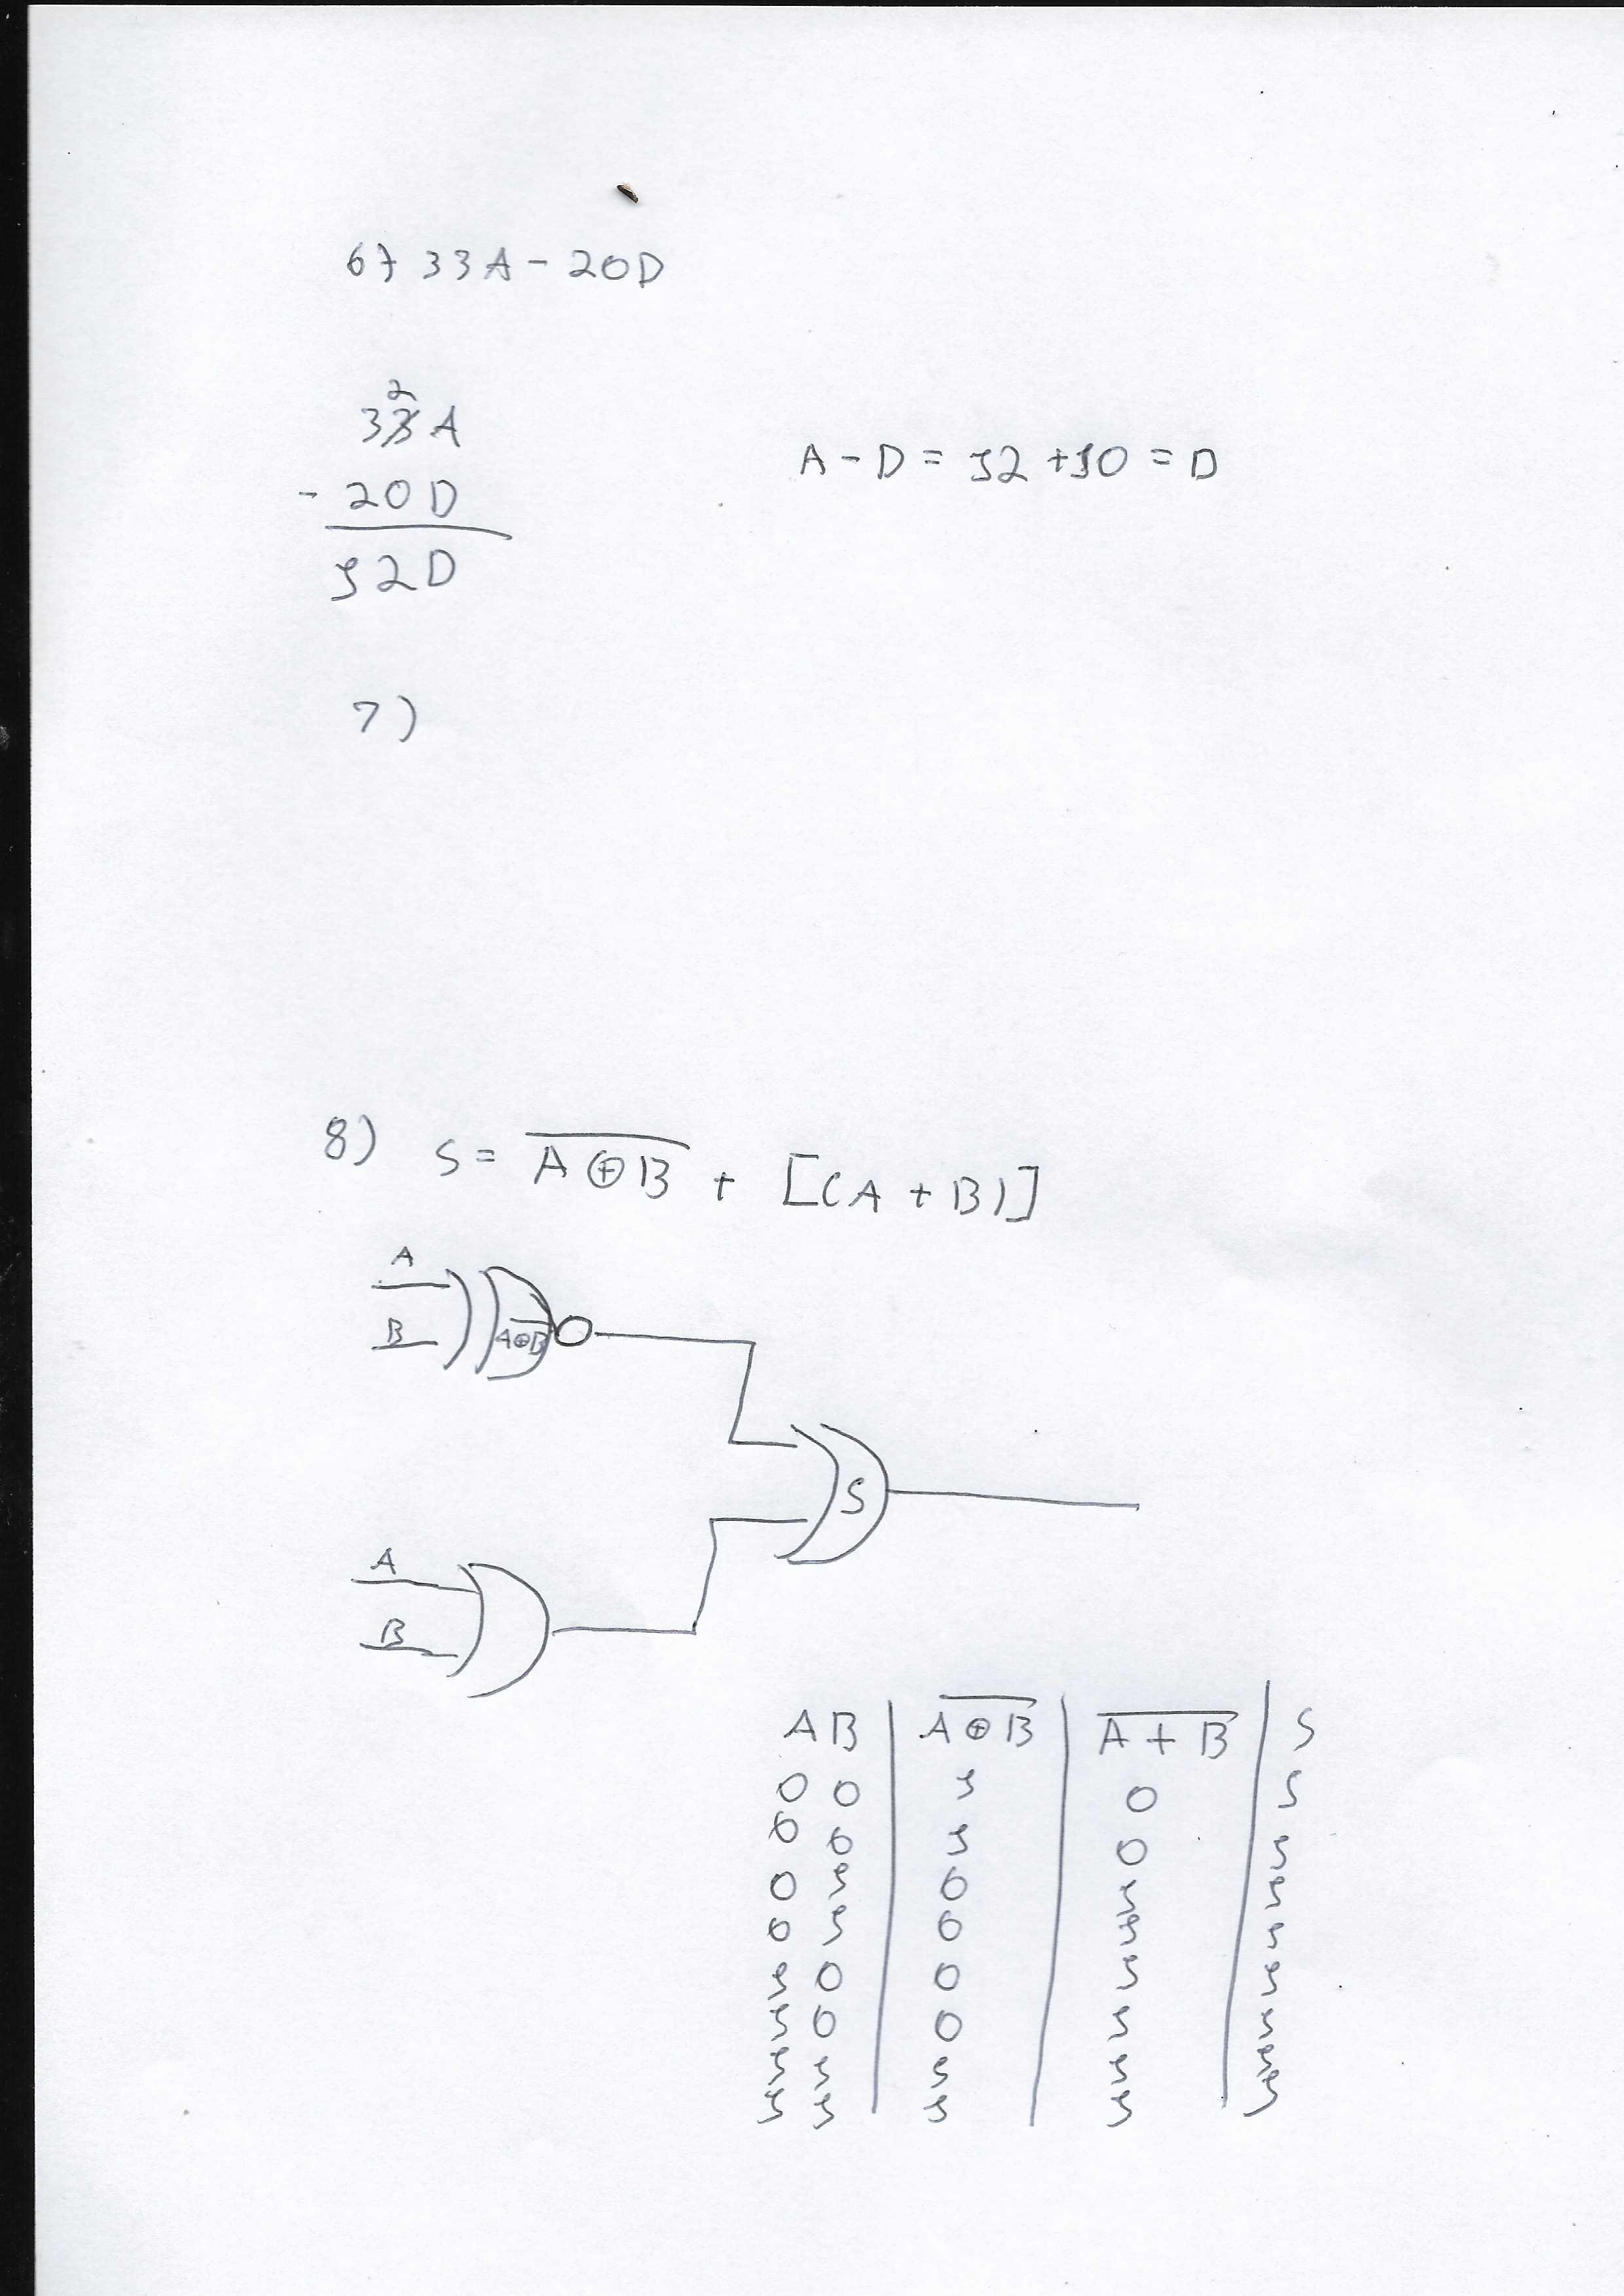 6) 33A - 20D
2
33A
- 20D
12D
A - D = 12 + 10 = D
7)
8) S = A̅ ̅⊕̅ ̅B̅ + [(A + B)]
A
B
A̅⊕̅B̅
S
A
B
A B | A̅ ̅⊕̅ ̅B̅ | A̅ ̅+̅ ̅B̅ | S
0 0 | 1 | 0 | 1
0 0 | 1 | 0 | 1
0 1 | 0 | 1 | 1
0 1 | 0 | 1 | 1
1 0 | 0 | 1 | 1
1 0 | 0 | 1 | 1
1 1 | 1 | 1 | 1
1 1 | 1 | 1 | 1